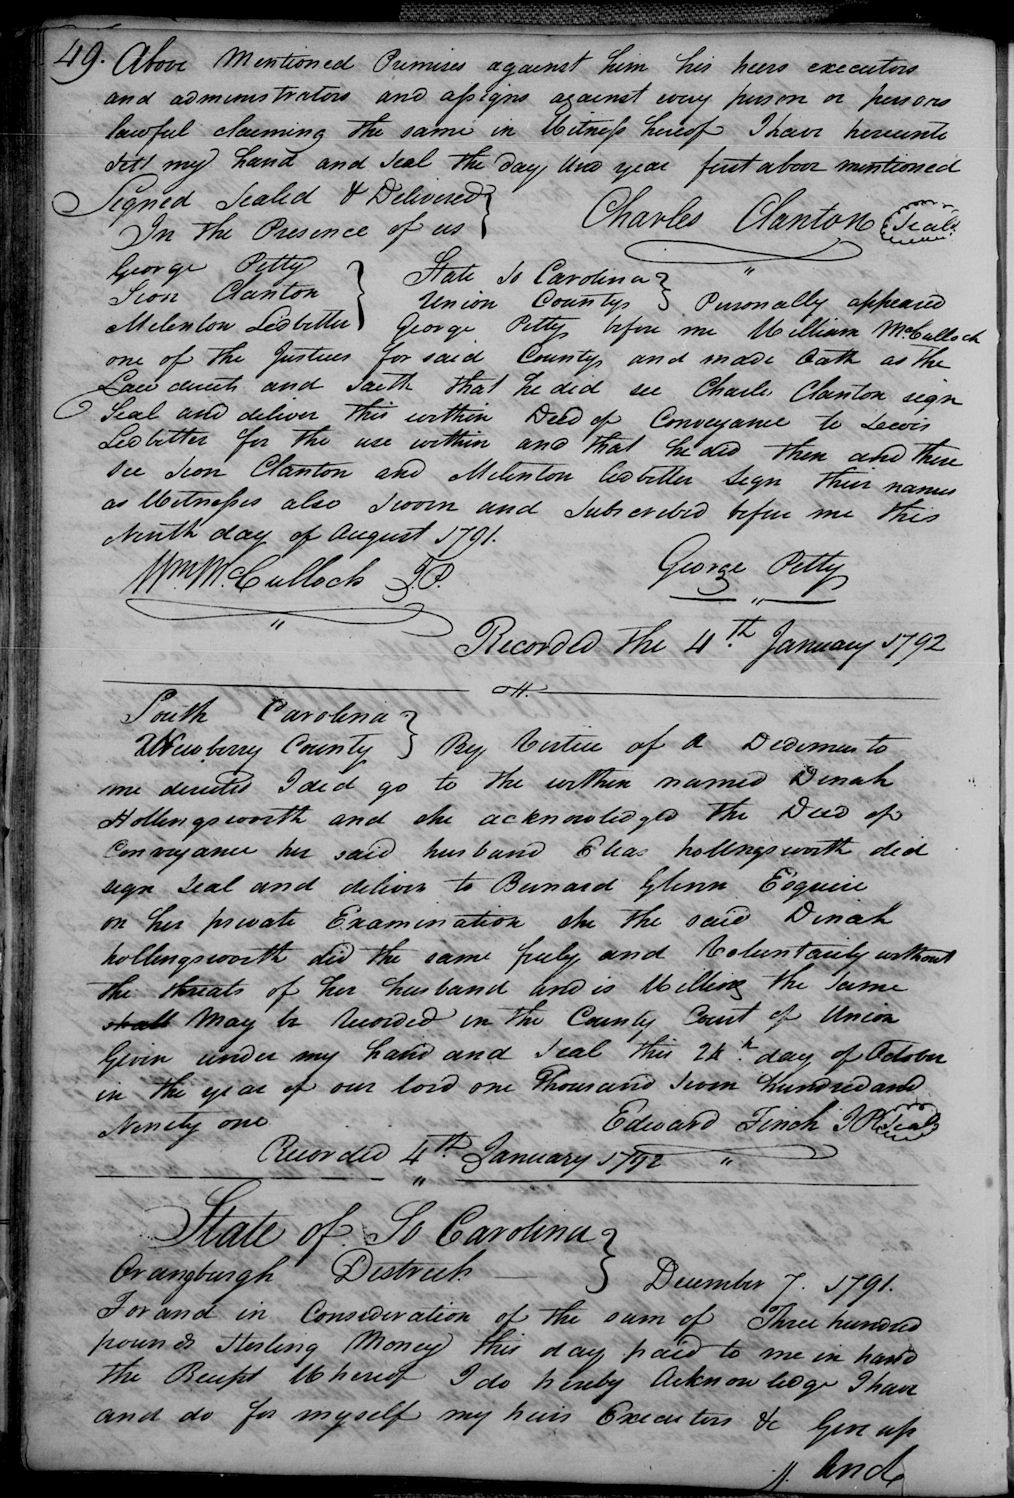 49. Above Mentioned Premises against him his heirs executors
and administrators and assigns against every person or persons
lawful claiming the same in Witness hereof I have hereunto
Sett my hand and Seal the day and year first above mentioned
Signed Sealed & Delivered
In the Presence of us
Charles Clanton Seal
George Petty
Sion Clanton
Melenton Ledbetter
State So Carolina
Union County Personally appeared
George Petty before me William McCulloch
one of the Justices for said County and made Oath as the
Law directs and saith that he did see Charles Clanton sign
Seal and deliver this within Deed of Conveyance to Lewis
Ledbetter for the use within and that he did then and there
see Sion Clanton and Melenton Ledbetter Sign their names
as Witnesses also Sworn and Subscribed before me this
Ninth day of August 1791.
Wm. McCulloch J.P.
George Petty
Recorded the 4th January 1792
South Carolina
Newberry County By Virtue of a Dedimus to
me directed I did go to the within named Dinah
Hollingsworth and she acknowledged the Deed of
Conveyance her said husband Elias hollingsworth did
sign Seal and deliver to Bernard Glenn Esquire
on her private Examination she the said Dinah
hollingsworth did the same freely and Voluntarily without
the threats of her husband and is Willing the Same
shall May be Recorded in the County Court of Union
Given under my hand and Seal this 24th day of October
in the year of our lord one Thousand Seven hundred and
Ninety one
Edward Finch J P Seal
Recorded 4th January 1792
State of So Carolina
Orangburgh District December 7. 1791.
For and in Consideration of the sum of Three hundred
pounds Sterling Money this day paid to me in hand
the Receipt Whereof I do hereby Acknowledge I have
and do for myself my heirs Executors &c Give up
And